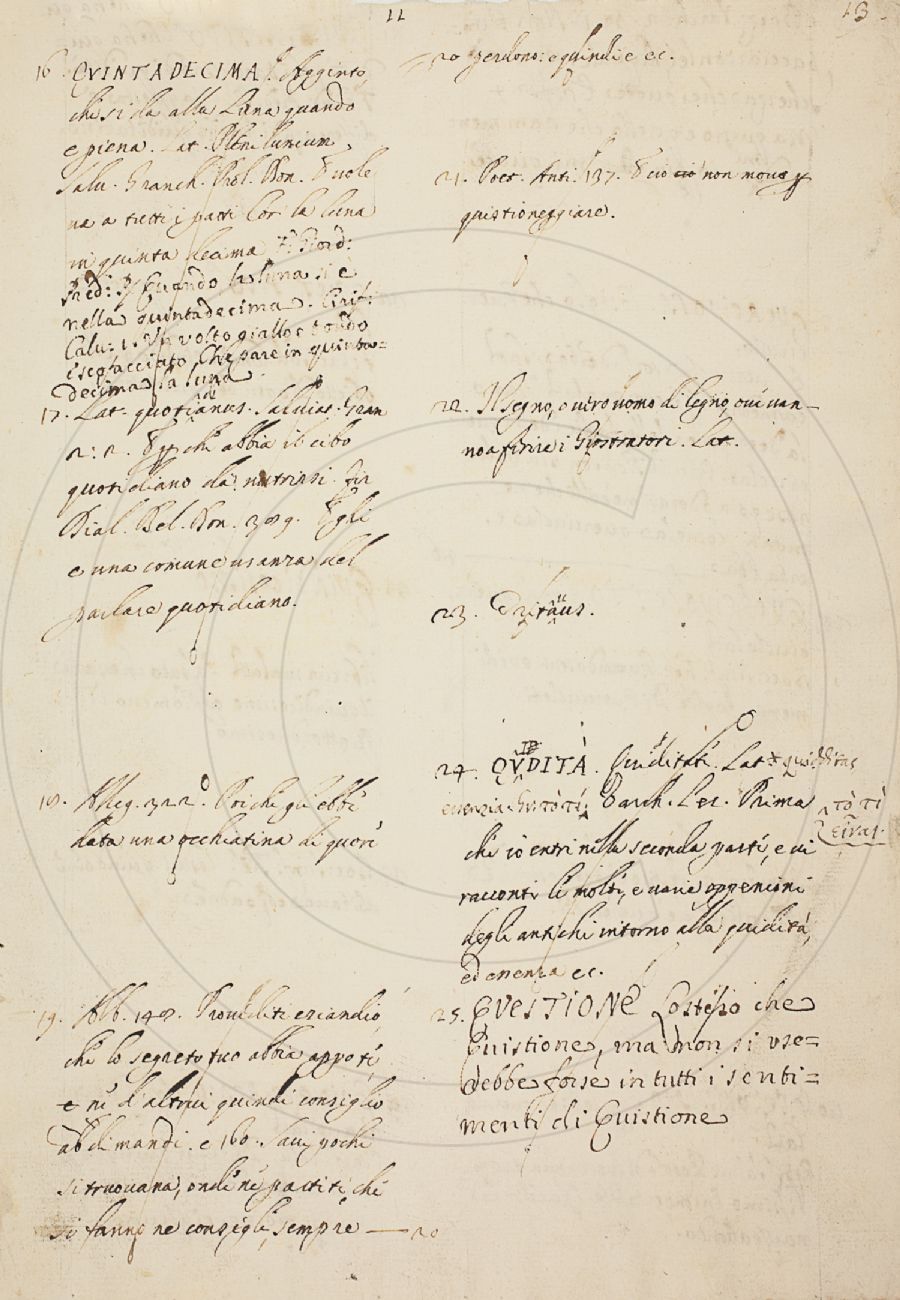 11
13
16. QVINTADECIMA. Aggiunto,
che si da alla Luna quando
e piena. Lat. Plenilunium,
Salu. Granch. Prol. Bon. E uole
na a tutti i patti Cor la luna
in quinta decima F. Giord:
Pred: Quando la luna si è
nella quintadecima. Cirif:
Calu: 1. Vn volto giallo e tondo
e scofacciato, Che pare in quinta=
decima la luna.
17. Lat. quotidianus. Saluiat. Gran
2: 2. chi abbia il cibo
quotidiano da nutrirsi.
Dial. Bel. Don. 309. Egli
e una comune usanza del
parlare quotidiano.
18. Alleg. 322. Poiche gli ebbe
data una occhiatina di quore
19. Alb. 142. Prouediti eziandio
che lo segreto tuo abbia appo te
e ne d'altrui quindi consiglio
addimandi. e 160. Sauj pochi
si truouana, onde ne partiti, che
si fanno ne consigli, sempre — 20
20 perdono: e quindi e ec.
21. Poet. Ant. 137. E cio non mouo p
quistioneggiare.
22. Il Segno, o uero uomo di legno, oue uan—
no a ferire i Giostratori. Lat.
23. Dritaus.
24. QVIDITÀ. Quiditate. Lat. quidditas
essenzia. Gr. τὸ τί Varch. Lez. Prima
τὸ τὶ
εἶναι.
che io entri nella seconda parte, e ui
racconti le molte, e uarie oppenioni
degli antichi intorno alla quidità,
ed essenza ec.
25. QVESTIONE Lo stesso che
Quistione, ma non si vse=
rebbe forse in tutti i senti=
menti di Quistione